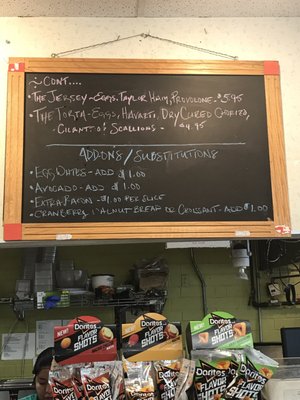 ~ CONT....
• THE JERSEY - EGGS, TAYLOR HAM, PROVOLONE - $5.95
• THE TORTA - EGGS, HAVARTI, DRY CURED CHORIZO,
CILANTRO & SCALLIONS - $4.95
ADD-ONS / SUBSTITUTIONS
• EGG WHITES - ADD $1.00
• AVOCADO - ADD $1.00
• EXTRA BACON - $1.00 PER SLICE
• CRANBERRY WALNUT BREAD OR CROISSANT - ADD $1.00
NEW! Doritos FLAVOR SHOTS
Doritos FLAVOR SHOTS
NEW! Doritos FLAVOR SHOTS